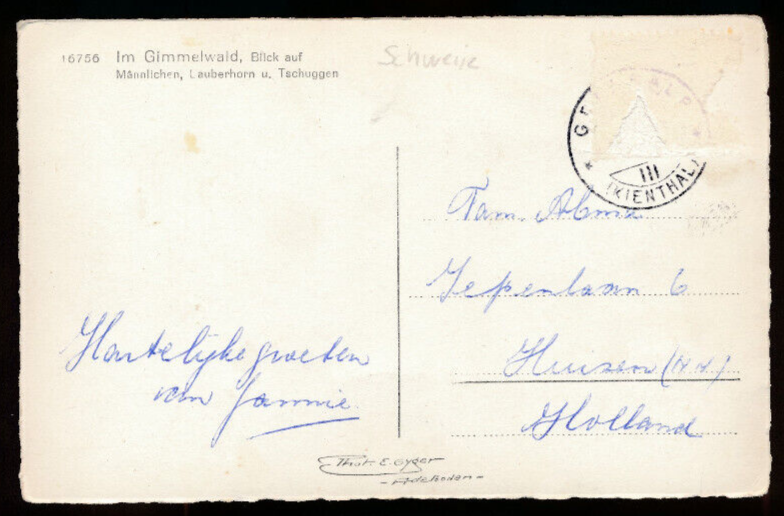 16756 Im Gimmelwald, Blick auf
Männlichen, Lauberhorn u. Tschuggen
Schweiz
GRIESALP
III
(KIENTHAL)
Fam. Abma
Iepenlaan 6
Huizen (N.H.)
Holland
Hartelijke groeten
van Jannie.
Phot. E. Gyger
- Adelboden -